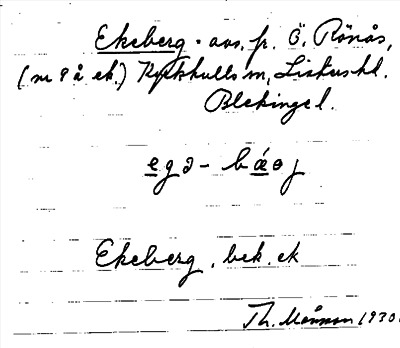 Ekeberg - avs. fr. Ö. Rönås,
(nr 9 å ek.) Kyrkhults sn, Listers hd.
Blekinge l.
egə- bǽɵj
Ekeberg, bek. ek
Th. Månsson 1930.